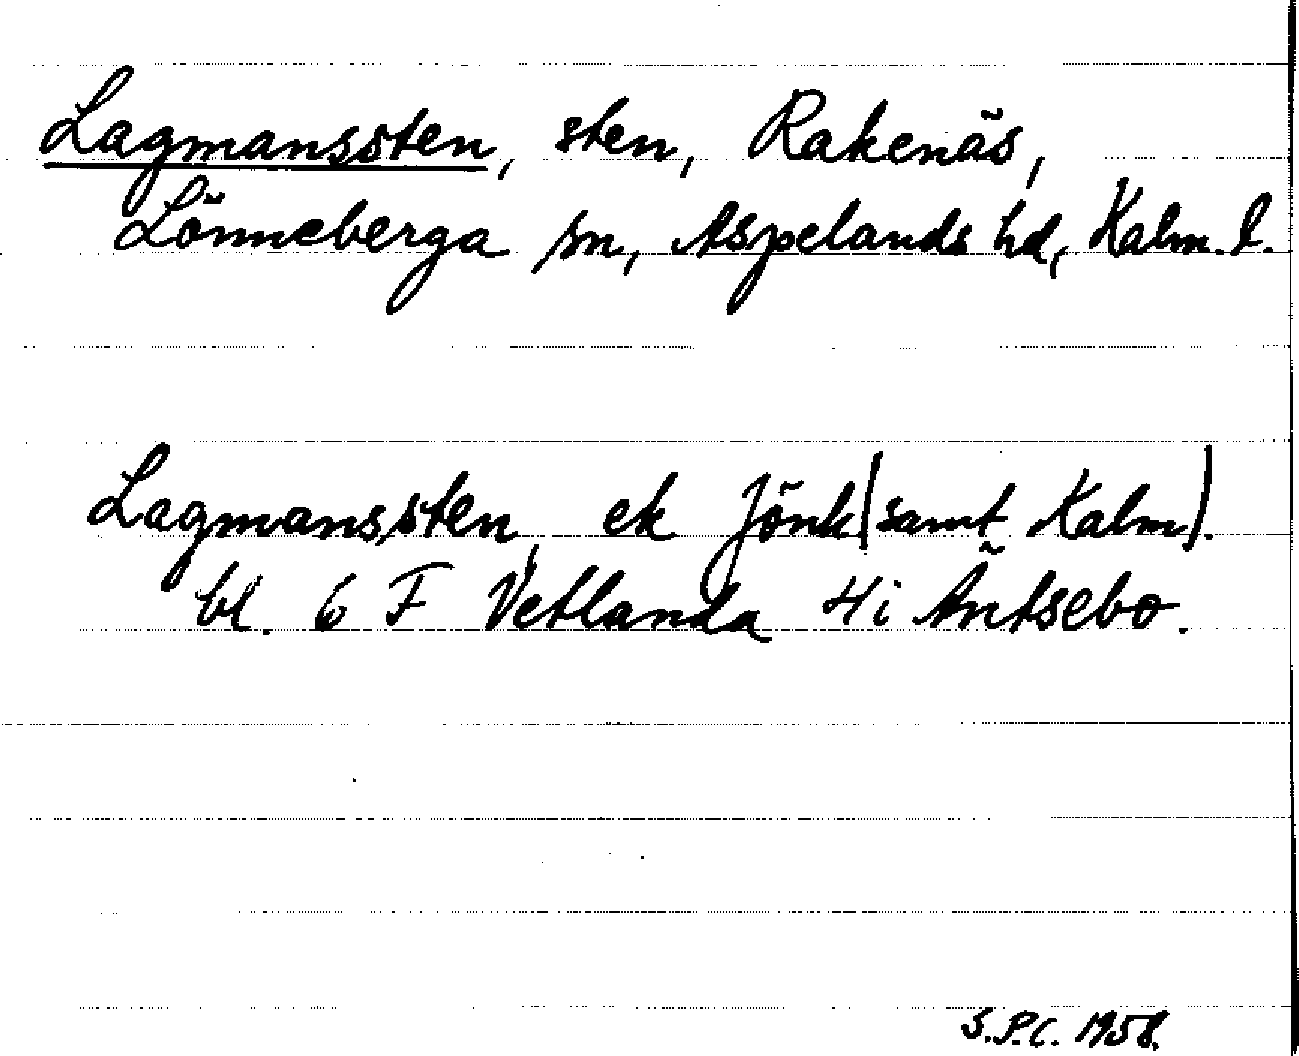 Lagmanssten, sten, Rakenäs,
Lönneberga sn, Aspelands hd, Kalm. l.
Lagmanssten, ek Jönk (samt Kalm).
bl. 6 F Vetlanda 4i Äntsebo.
S.P.C. 1958.